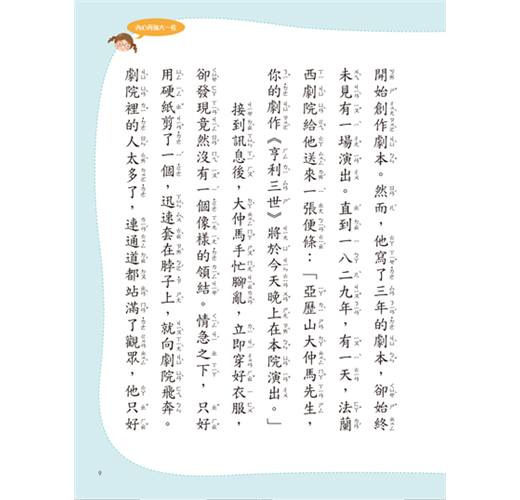 內心再強大一些
開始創作劇本。然而，他寫了三年的劇本，卻始終
未見有一場演出。直到一八二九年，有一天，法蘭
西劇院給他送來一張便條：「亞歷山大仲馬先生，
你的劇作《亨利三世》將於今天晚上在本院演出。」
接到訊息後，大仲馬手忙腳亂，立即穿好衣服，
卻發現竟然沒有一個像樣的領結。情急之下，只好
用硬紙剪了一個，迅速套在脖子上，就向劇院飛奔。
劇院裡的人太多了，連通道都站滿了觀眾，他只好
9